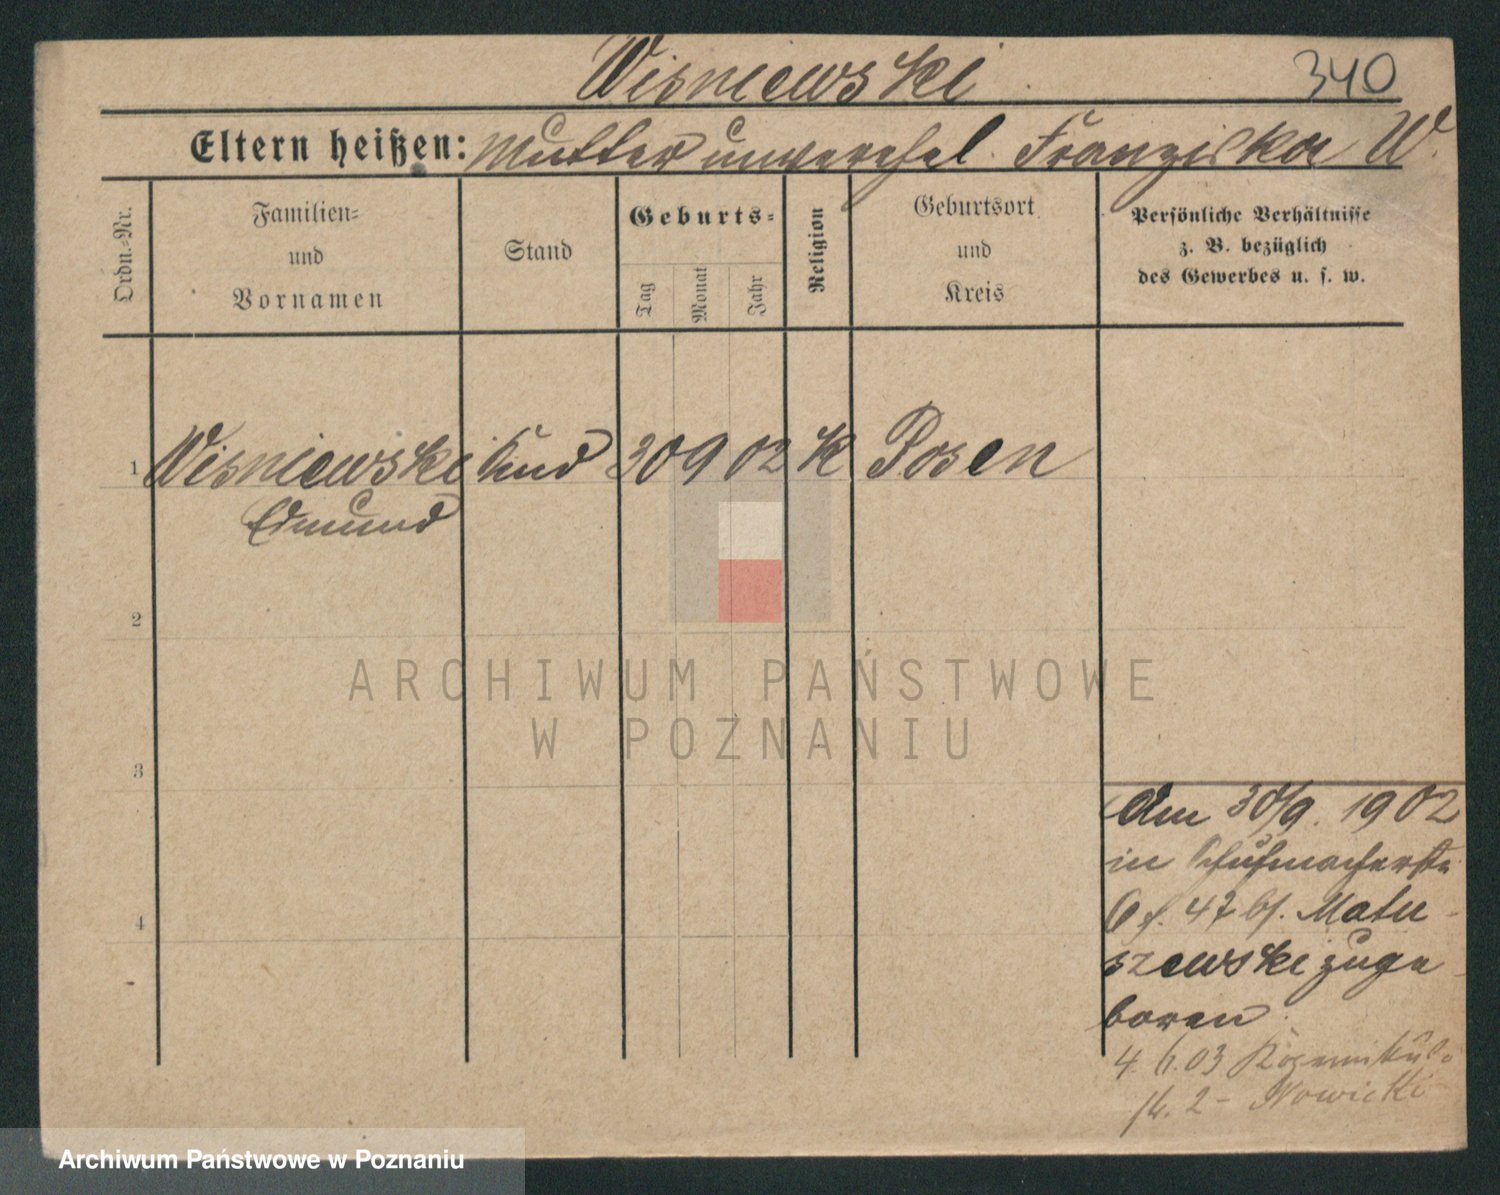 Wisniewski
340
Eltern heißen: Mutter unverehel. Franziska W.
Ordn.=Nr.
Familien=
und
Vornamen
Stand
Geburts=
Tag
Monat
Jahr
Religion
Geburtsort
und
Kreis
Persönliche Verhältnisse
z. B. bezüglich
des Gewerbes u. s. w.
1 Wisniewski Kind 30 9 02 K Posen
Edmund
2
3
4
ARCHIWUM PAŃSTWOWE
W POZNANIU
Am 30/9. 1902
in Schuhmacherstr.
6 f. 47 bh. Matu-
szewski zuge-
boren.
4. 6. 03
2 - Nowicki
Archiwum Państwowe w Poznaniu